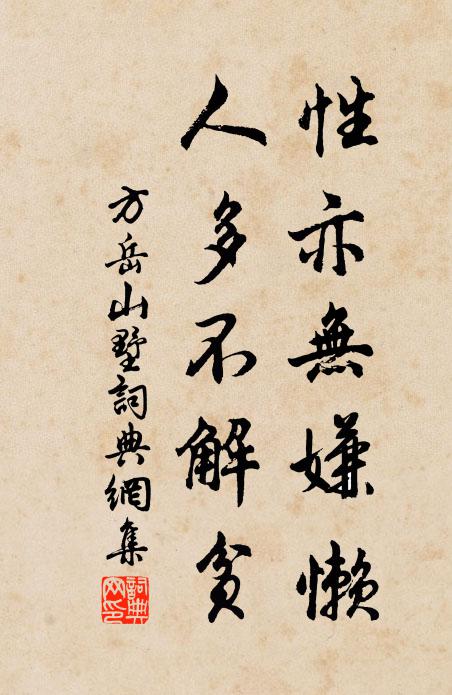 性亦無嫌懶
人多不解貧
方岳山墅詞典網集
詞典
網印